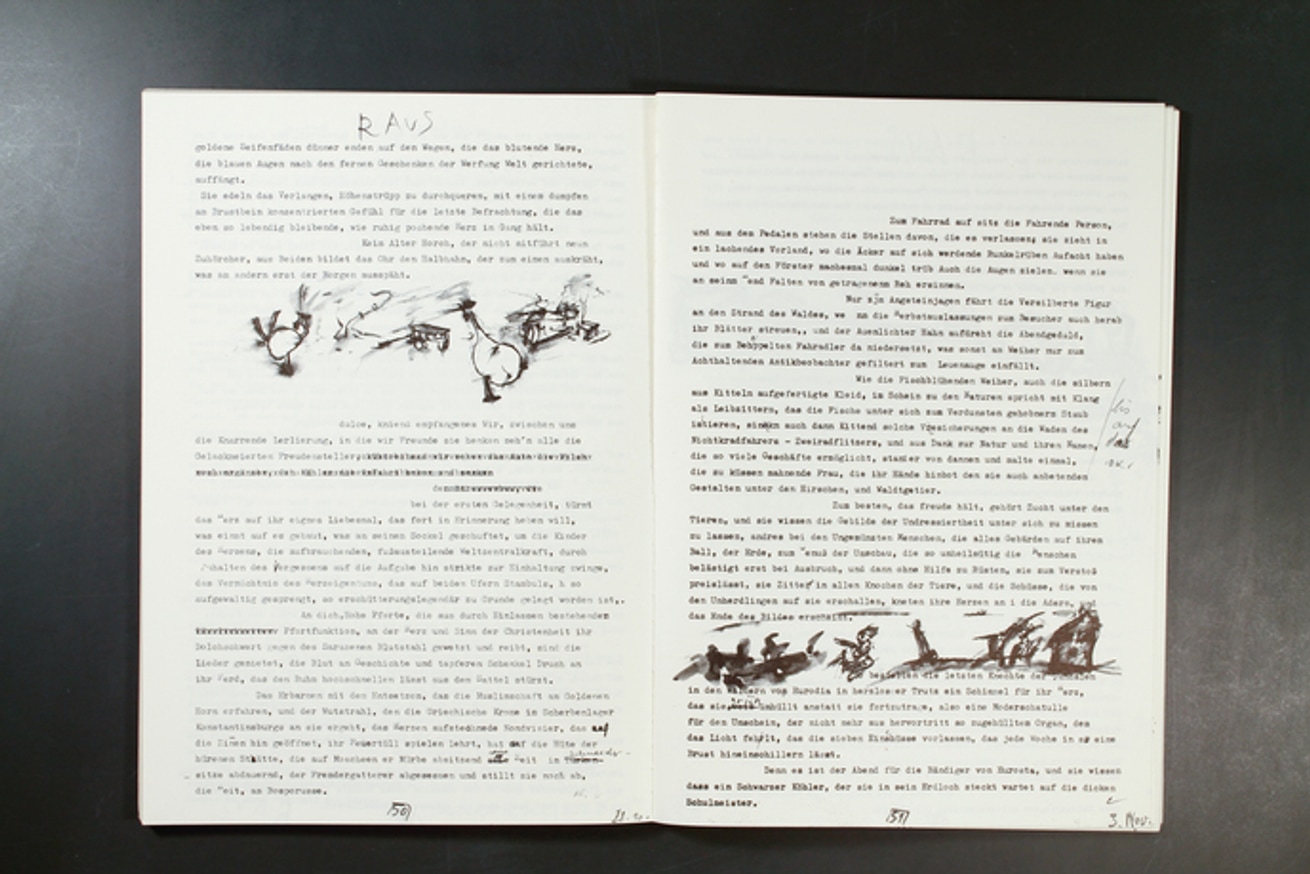 RAUS
goldene Seifenfäden dünner enden auf den Wegen, die das blutende Herz,
die blauen Augen nach den fernen Geschenken der Werfung Welt gerichtete,
auffängt.
Die edeln das Verlangen, Höhenstrüpp zu durchqueren, mit einem dumpfen
am Brustbein konzentrierten Gefühl für die letzte Befrachtung, die das
eben so lebendig bleibende, wie ruhig pochende Herz in Gang hält.
Kein Alter Horch, der nicht mitführt neun
Zuhörcher, aus Beiden bildet das Ohr den Halbhahn, der zum einen auskräht,
was am andern erst der Morgen ausspäht.
dulce, kniend empfangenes Wir, zwischen uns
die Knurrende Lerlierung, in die wir Freunde sie henken seh'n alle die
Gelackmeierten Freudensteller,
bei der ersten Gelegenheit, türmt
das erz auf ihr eignes Liebesmal, das fort in Erinnerung heben will,
was einst auf es gebaut, was an seinen Sockel geschuftet, um die Kinder
des erzens, die aufbrauchenden, fußausteilende Weltzentralkraft, durch
halten des Vergessens auf die Aufgabe hin strikte zur Einhaltung zwinge,
das Vermächtnis des erzeigentums, das auf beiden Ufern Stambuls, h so
aufgewaltig gesprengt, so erschütterungslegendär zu Grunde gelegt worden ist,.
An dich, Hohe Pforte, die aus durch Einlassen bestehender
Pfortfunktion, an der erz und Sinn der Christenheit ihr
Dolchschwert gegen des Sarazenen Blutstahl gewetzt und reibt, sind die
Lieder genietet, die Blut an Geschichte und tapferen Schenkel Druck an
ihr Pferd, das den Ruhm hochschnellen lässt aus dem Sattel stürzt.
Das Erbarmen mit den Entsetzen, das die Muslimschaft am Goldenen
Horn erfahren, und der Wutstrahl, den die Griechische Krone im Scherbenlager
Konstantinsburgs an sie ergeht, das Herzen aufstechende Mondvisier, das auf
die Sinne hin geöffnet, ihr Feuertüll spielen lehrt, hat auf die Hüte der
bürenen Stätte, die auf Moscheen er Mürbe absitzend eit in
sitze abdauernd, der Fremdergatterer abgesessen und stillt sie noch ab,
die eit, am Bosporusse.
150
Zum Fahrrad auf sitz die Fahrende Person,
und aus den Pedalen stehen die Stellen davon, die es verlassen; sie zieht in
ein lachendes Vorland, wo die Äcker auf sich werdende Runkelrüben Aufacht haben
und wo auf den Förster manchesmal dunkel trüb Auch die Augen zielen. wenn sie
an seinm end Falten von getragenenm Reh ersinnen.
Nur zjn Angsteinjagen führt die Versilberte Figur
an den Strand des Waldes, we nn die erbstauslassungen zum Besucher auch herab
ihr Blätter streuen,, und der Auenlichter Hahn aufdreht die Abendgeduld,
die zum Behöppelten Fahradler da niedersetzt, was sonst am Weiher nur zum
Achthaltenden Antikbeobachter gefiltert zum Leuenauge einfällt.
Wie die Fischblühenden Weiher, auch die silbern
aus Kitteln aufgefertigte Kleid, im Schein zu den Naturen spricht mit Klang
als Leibzittern, das die Fische unter sich zum Verdunsten gehobenern Staub
auch dann Kittend solche Versicherungen an die Waden des
Nichtkradfahrers - Zweiradflitzers, und aus Dank zur Natur und ihren Namen,
die so viele Geschäfte ermöglicht, stanzer von dannen und malte einmal,
die zu küssen mahnende Frau, die ihr Hände hinbot den sie auch anbetenden
Gestalten unter den Hirschen, und Waldtgetier.
bis
auf
Zum besten, das freude hält, gehört Zucht unter den
Tieren, und sie wissen die Gebilde der Undressiertheit unter sich zu missen
zu lassen, andres bei den Ungezümten Menschen, die alles Gebärden auf ihrem
Ball, der Erde, zum enuß der Umschau, die so unheilmütig die enschen
belästigt erst bei Ausbruch, und dann ohne Hilfe zu Rüsten, sie zum Verstoß
preislässt, sie Zittern in allen Knochen der Tiere, und die Schüsse, die von
den Unherdlingen auf sie erschallen, kneten ihre Herzen an i die Adern, und
das Ende des Bildes erscheint.
bestellen die letzten Knechte der
in den Wäldern von Eurodia in herzloser Truts ein Schimmel für ihr erz,
das sie umhüllt anstatt sie fortzutrage, also eine Moderschatulle
für den Umschein, der nicht mehr aus hervortritt so zugehülltem Organ, dem
das Licht fehlt, das die sieben Einbüsse vorlassen, das jede Woche in er eine
Brust hineinschillern lässt.
Denn es ist der Abend für die Bändiger von Eurosta, und sie wissen
dass ein Schwarzer Köhler, der sie in sein Erdloch steckt wartet auf die dicken
Schulmeister.
151
3. Nov.